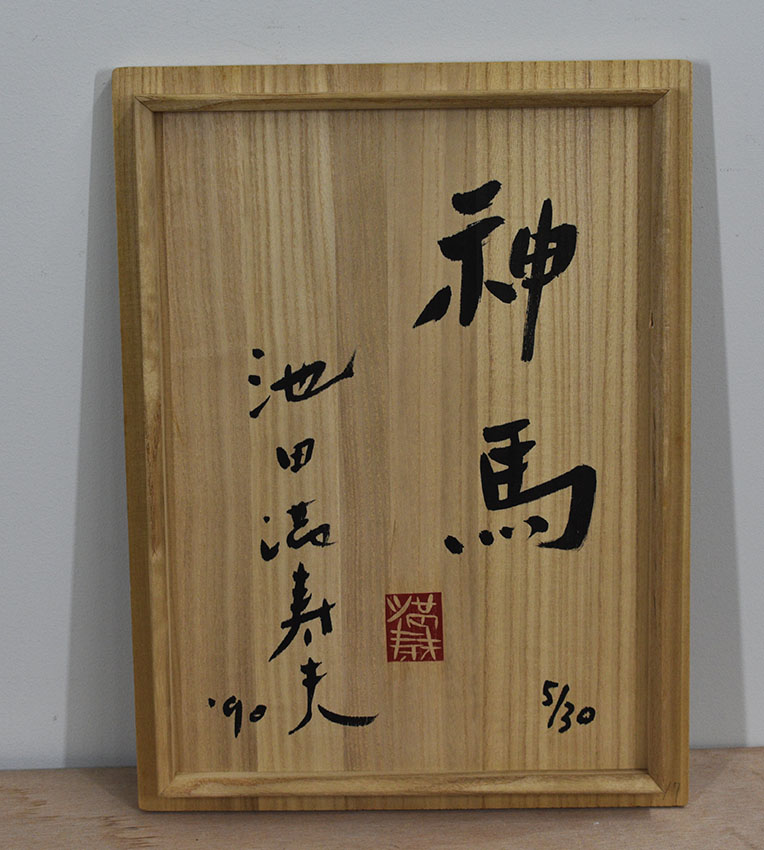 神馬
5/30
満寿
池田満寿夫
'90